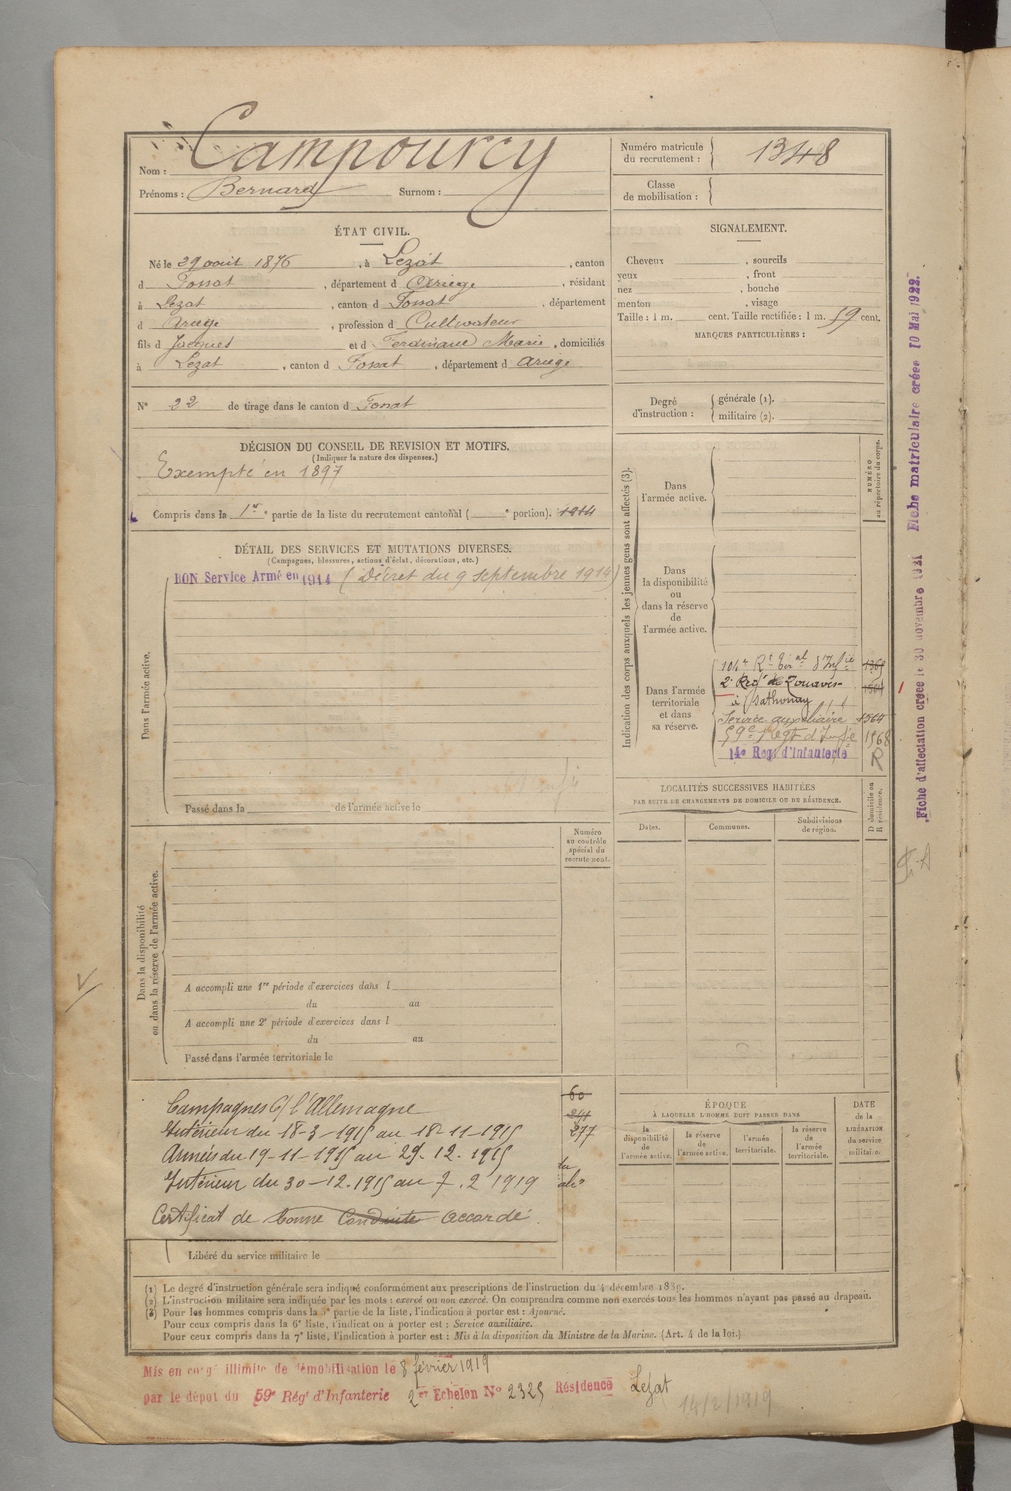 Nom : Campourcy
Prénoms : Bernard Surnom :
Numéro matricule du recrutement : 1348
Classe de mobilisation :
ÉTAT CIVIL.
Né le 29 août 1876, à Lezat, canton
d Fossat, département d Ariège, résidant
à Lezat, canton d Fossat, département
d Ariège, profession d Cultivateur
fils d Jacques et d Ferdinane Marie, domiciliés
à Lezat, canton d Fossat, département d Ariège
N° 22 de tirage dans le canton d Fossat
SIGNALEMENT.
Cheveux , sourcils
yeux , front
nez , bouche
menton , visage
Taille : 1 m. cent. Taille rectifiée : 1 m. 59 cent.
MARQUES PARTICULIÈRES :
Degré d'instruction : générale (1).
militaire (2).
DÉCISION DU CONSEIL DE REVISION ET MOTIFS.
(Indiquer la nature des dispenses.)
Exempté en 1897
Compris dans la 1re partie de la liste du recrutement cantonal ( e portion). 1914
DÉTAIL DES SERVICES ET MUTATIONS DIVERSES.
(Campagnes, blessures, actions d'éclat, décorations, etc.)
BON Service Armé en 1914 (Décret du 9 septembre 1914)
Dans l'armée active.
Passé dans la de l'armée active le
Indication des corps auxquels les jeunes gens sont affectés (3).
NUMÉRO au répertoire du corps.
Dans l'armée active.
Dans la disponibilité ou dans la réserve de l'armée active.
Dans l'armée territoriale et dans sa réserve.
104e Rt Ter al d'Infie
2e Regt de Zouaves
à Sathonay
Service auxiliaire 1564
59e Regt d'Infie 1968
14e Reg. d'Infanterie R
LOCALITÉS SUCCESSIVES HABITÉES
PAR SUITE DE CHANGEMENTS DE DOMICILE OU DE RÉSIDENCE.
Dates. Communes. Subdivisions de région.
D domicile ou R résidence.
Numéro au contrôle spécial du recrutement.
Dans la disponibilité ou dans la réserve de l'armée active.
A accompli une 1re période d'exercices dans l
du au
A accompli une 2e période d'exercices dans l
du au
Passé dans l'armée territoriale le
Campagnes C/ l'Allemagne
Intérieur du 18-3-1915 au 18-11-1915
Armées du 19-11-1915 au 29-12-1915
Intérieur du 30-12-1915 au 7.2 1919
Certificat de bonne Conduite accordé
60
241
277
Libéré du service militaire le
ÉPOQUE
À LAQUELLE L'HOMME DOIT PASSER DANS
la disponibilité de l'armée active.
la réserve de l'armée active.
l'armée territoriale.
la réserve de l'armée territoriale.
DATE de la LIBÉRATION du service militaire.
(1) Le degré d'instruction générale sera indiqué conformément aux prescriptions de l'instruction du 4 décembre 1889.
(2) L'instruction militaire sera indiquée par les mots : exercé ou non exercé. On comprendra comme non exercés tous les hommes n'ayant pas passé au drapeau.
(3) Pour les hommes compris dans la 5e partie de la liste, l'indication à porter est : Ajourné.
Pour ceux compris dans la 6e liste, l'indication à porter est : Service auxiliaire.
Pour ceux compris dans la 7e liste, l'indication à porter est : Mis à la disposition du Ministre de la Marine. (Art. 4 de la loi.)
Mis en congé illimité de démobilisation le 8 février 1919
par le dépôt du 59e Rég t d'Infanterie 2er Echelon N° 2325 Résidence Lezat
14/2/1919
Fiche d'affectation créée le 30 novembre 1921 Fiche matriculaire créée 10 Mai 1922.